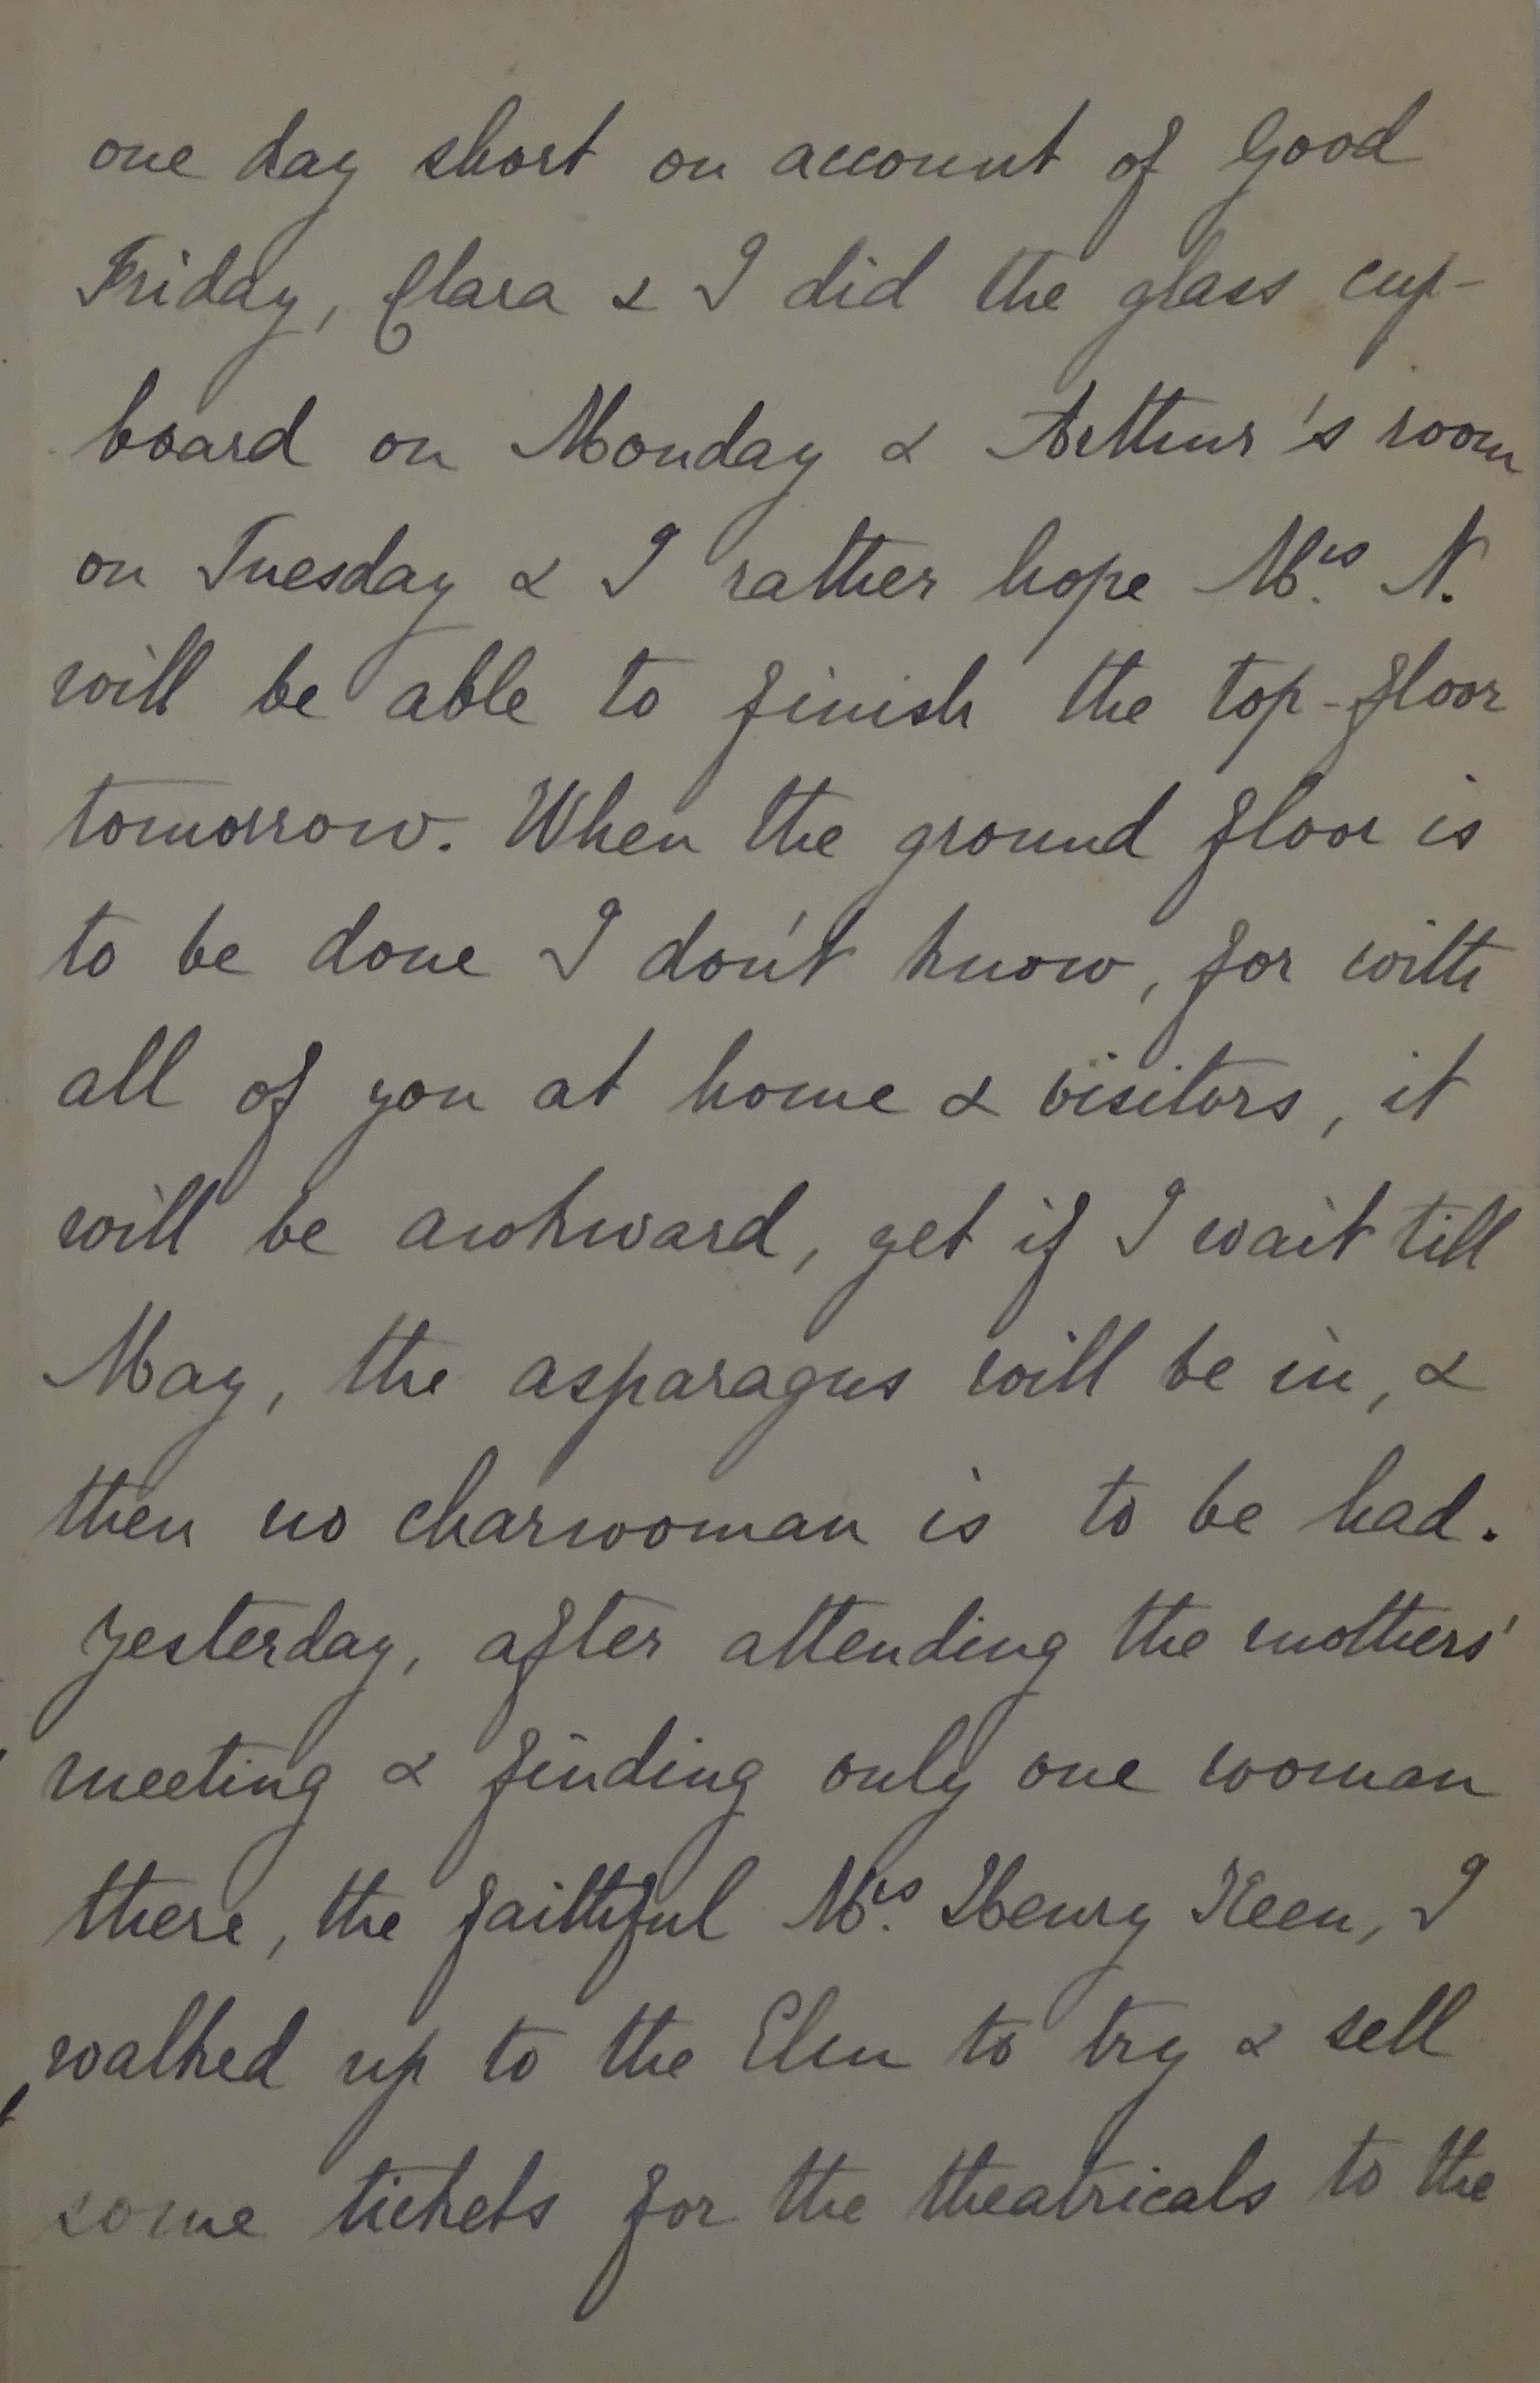 one day short on account of Good
Friday, Clara & I did the glass cup-
board on Monday & Arthur's room
on Tuesday & I rather hope Mrs. N.
will be able to finish the top-floor
tomorrow. When the ground floor is
to be done I don't know, for with
all of you at home & visitors, it
will be awkward, yet if I wait till
May, the asparagus will be in, &
then no charwoman is to be had.
Yesterday, after attending the mothers'
meeting & finding only one woman
there, the faithful Mrs. Henry Keen, I
walked up to the Elm to try & sell
some tickets for the theatricals to the